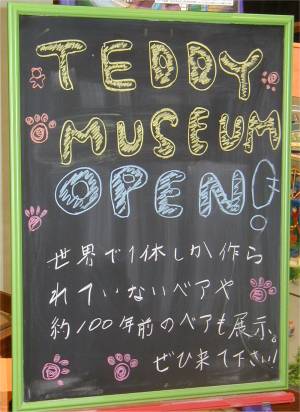 TEDDY
MUSEUM
OPEN!
世界で1体しか作ら
れていないベアや
約100年前のベアも展示。
ぜひ来て下さい!